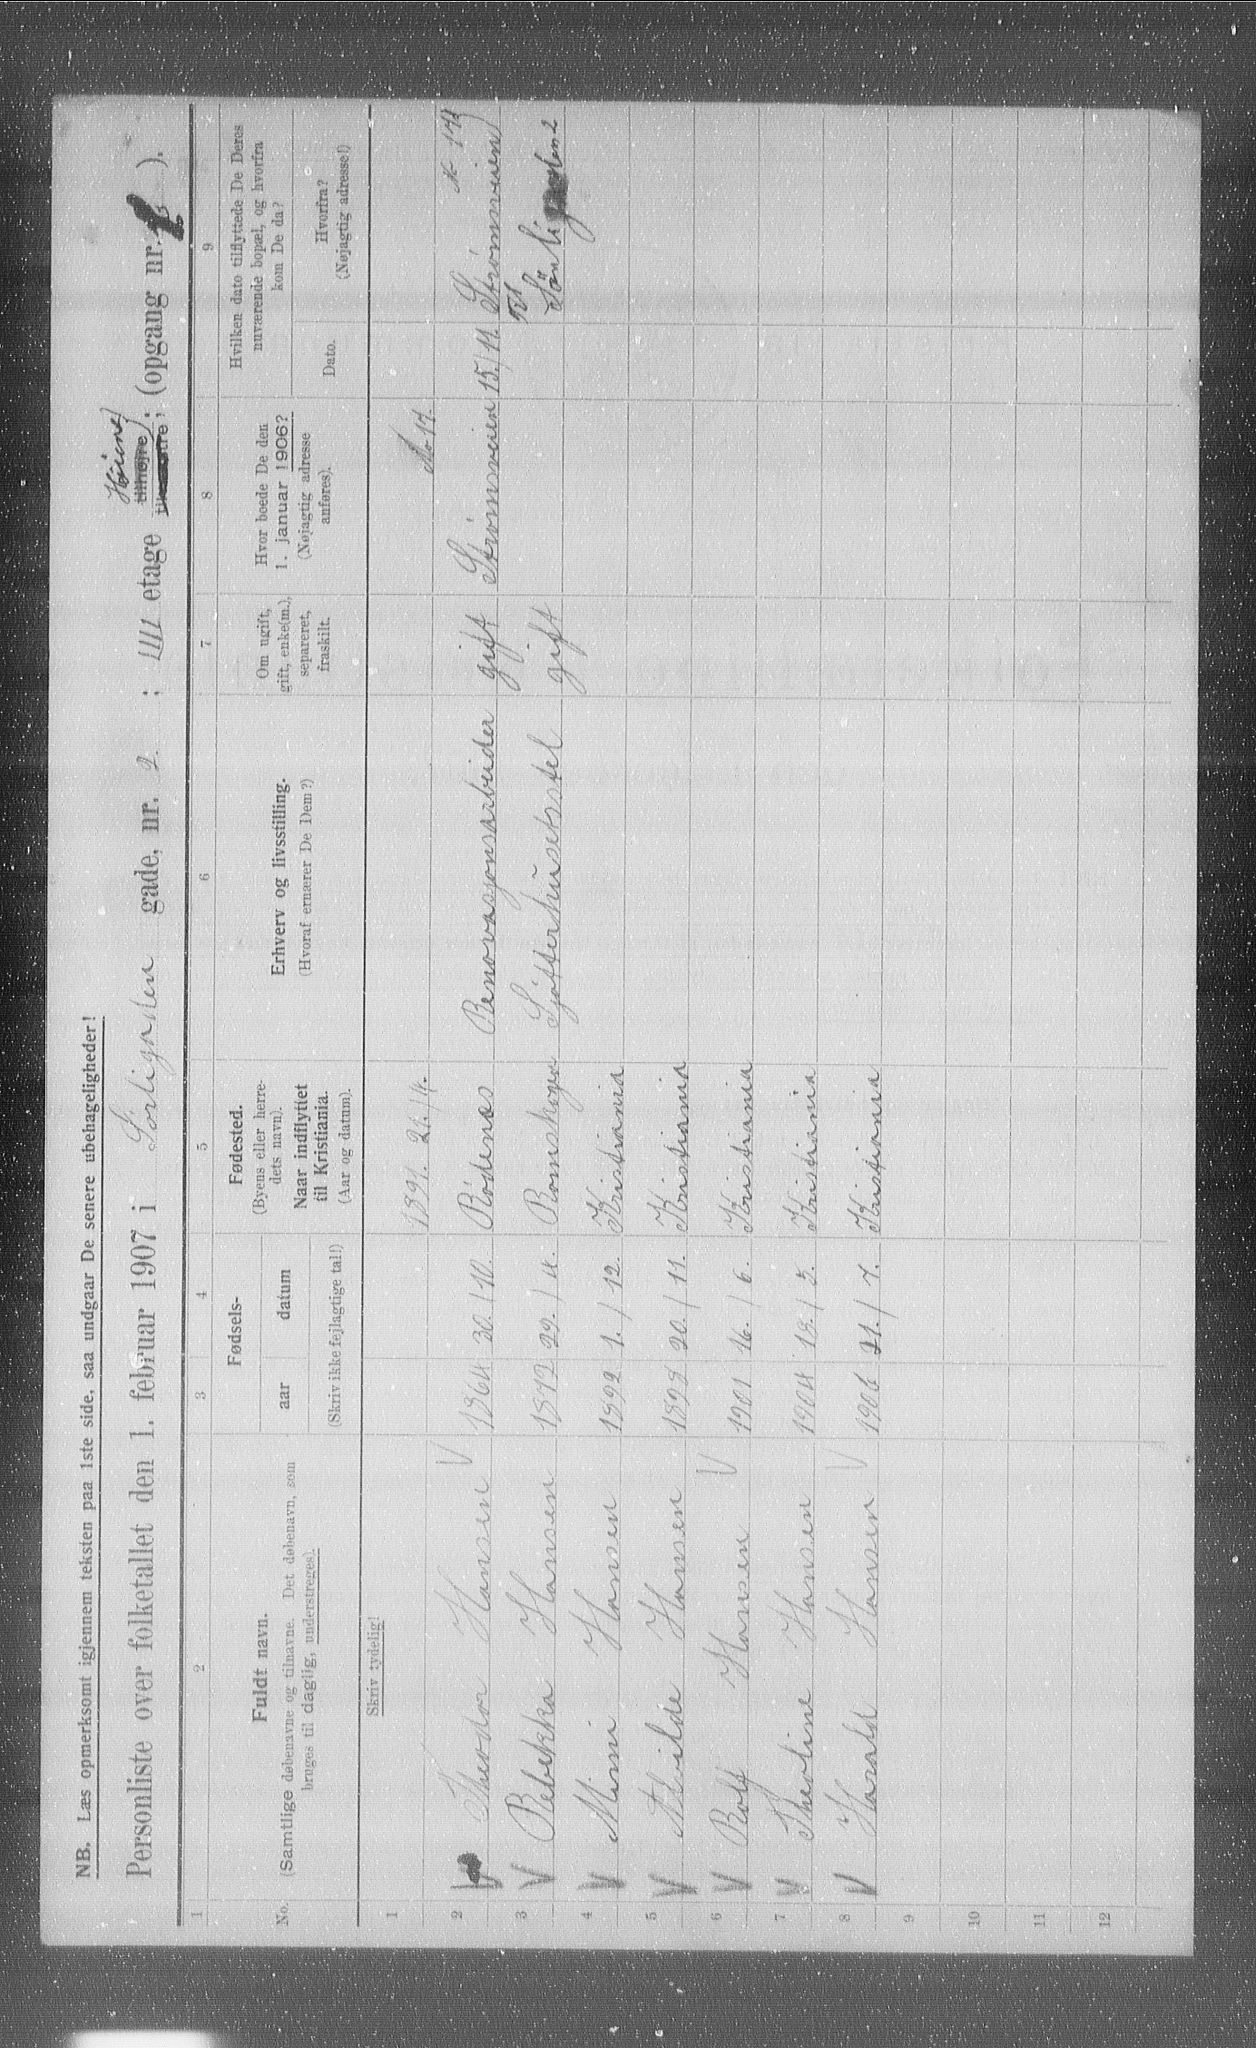 NB. Læs opmerksomt igjennem teksten paa 1ste side, saa undgaar De senere ubehageligheder!
Personliste over folketallet den 1. februar 1907 i Sörligaden gade, nr. 2 ; IIII etage tilhøjre ; (opgang nr. ).
1 2 3 4 5 6 7 8 9
No.
Fuldt navn.
(Samtlige døbenavne og tilnavne. Det døbenavn, som
bruges til daglig, understreges).
Fødsels-
aar datum
(Skriv ikke fejlagtige tal!)
Fødested.
(Byens eller herre-
dets navn).
Naar indflyttet
til Kristiania.
(Aar og datum).
Erhverv og livsstilling.
(Hvoraf ernærer De Dem?)
Om ugift,
gift, enke(m.),
separeret,
fraskilt.
Hvor boede De den
1. januar 1906?
(Nøjagtig adresse
anføres).
Hvilken dato tilflyttede De Deres
nuværende bopæl, og hvorfra
kom De da?
Dato.
Hvorfra?
(Nøjagtig adresse!)
Skriv tydelig!
1 No 17.
2 Theodor Hansen 1864 30./10. Rödenæs Renovasjonsarbeider gift Strömsveien 15./11. Strömsveien
3 Rebekka Hansen 1872 29./4. Romskogn gift
4 Mimi Hansen 1892 1./12. Kristiania
5 Alvilde Hansen 1898 20./11. Kristiania
6 Rolf Hansen 1901 16./6. Kristiania
7 Theoline Hansen 1904 Kristiania
8 Harald Hansen 1906 21./7. Kristiania
9
10
11
12